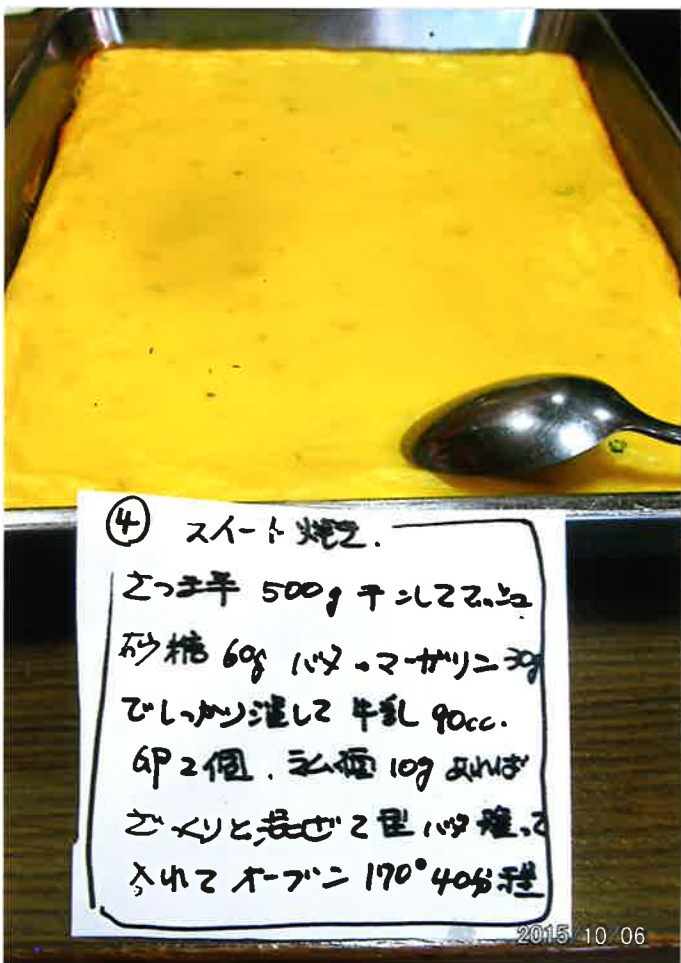 ④ スイート焼き.
さつま芋 500g チンしてマッシュ
砂糖 60g バター・マーガリン 30g
でしっかり混して 牛乳 90cc.
卵2個. ラム酒 10g あれば
ざっくりと混ぜて 型 バタ 塗って
入れて オーブン 170° 40分 程
2015/10/06